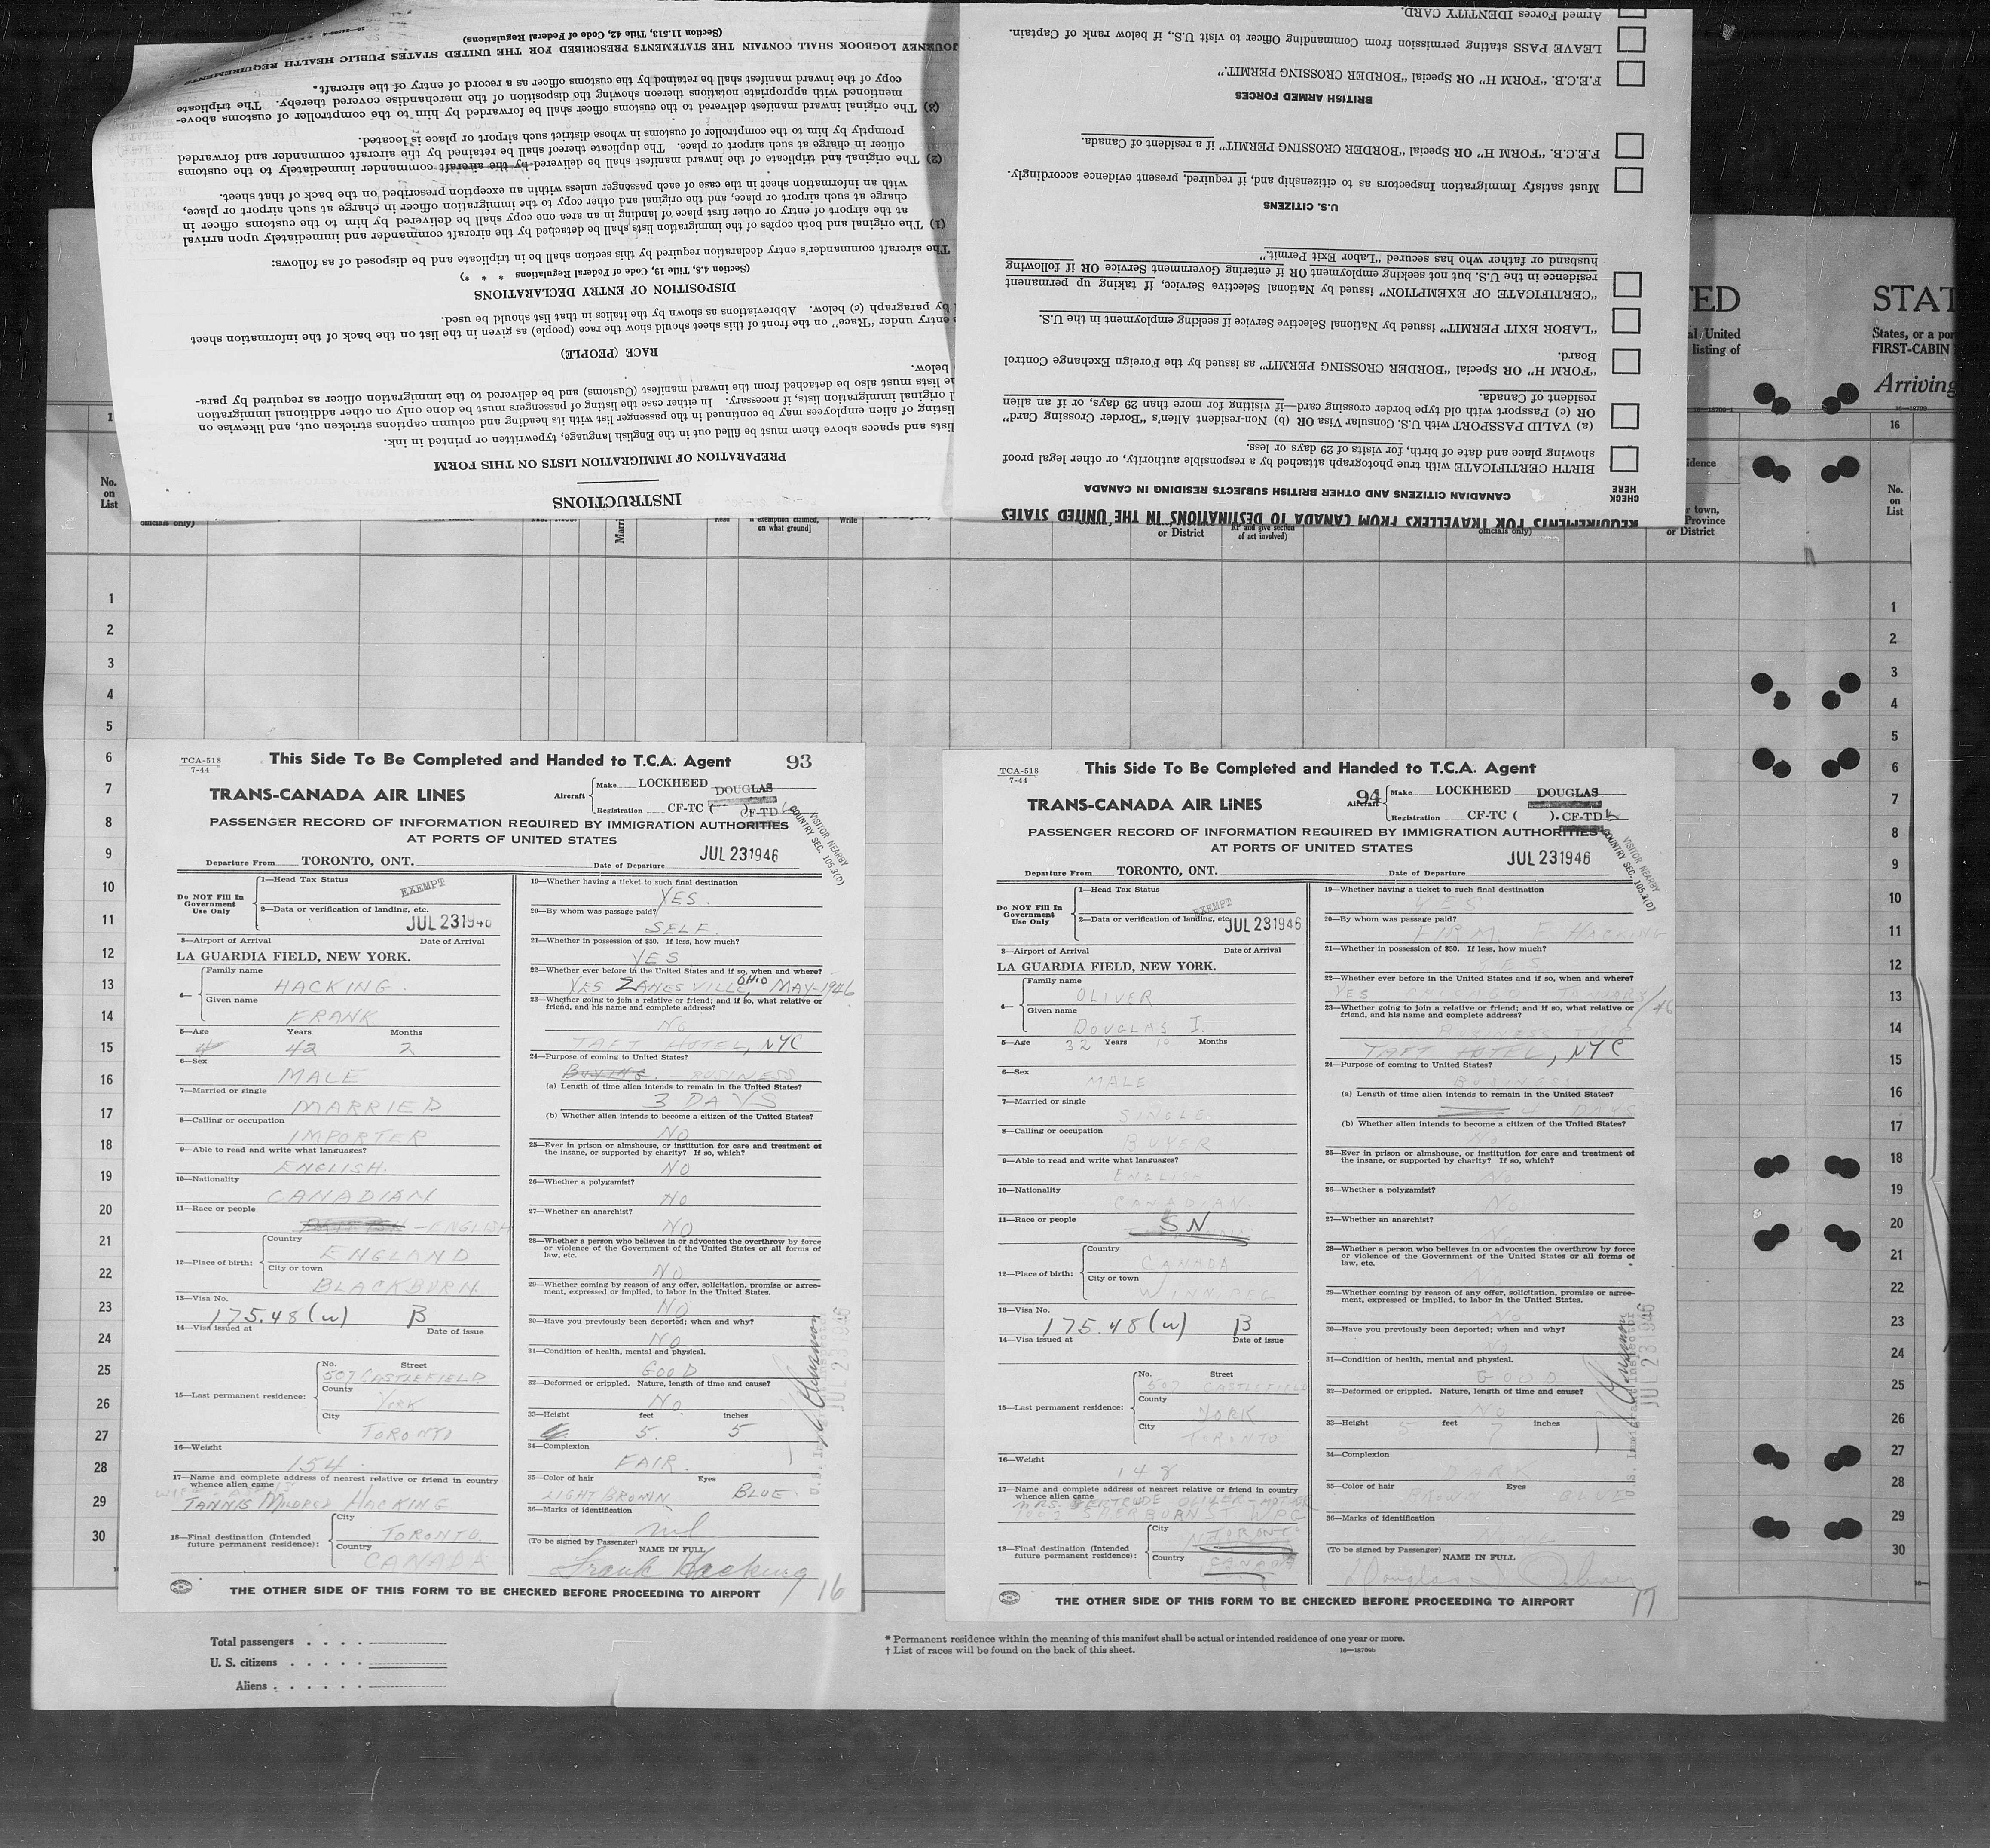 INSTRUCTIONS
PREPARATION OF IMMIGRATION LISTS ON THIS FORM
lists and spaces above them must be filled out in the English language, typewritten or printed in ink.
listing of alien employees may be continued in the passenger list with its heading and column captions stricken out, and likewise on
original immigration lists, if necessary. In either case the listing of passengers must be done only on other additional immigration
lists must also be detached from the inward manifest (Customs) and be delivered to the immigration officer as required by para-
below.
RACE (PEOPLE)
entry under "Race" on the front of this sheet should show the race (people) as given in the list on the back of the information sheet
by paragraph (c) below. Abbreviations as shown by the italics in that list should be used.
DISPOSITION OF ENTRY DECLARATIONS
(Section 4.8, Title 19, Code of Federal Regulations * * *)
The aircraft commander's entry declaration required by this section shall be in triplicate and be disposed of as follows:
(1) The original and both copies of the immigration lists shall be detached by the aircraft commander and immediately upon arrival
at the airport of entry or other first place of landing in an area one copy shall be delivered by him to the customs officer in
charge at such airport or place, and the original and other copy to the immigration officer in charge at such airport or place,
with an information sheet in the case of each passenger unless within an exception prescribed on the back of that sheet.
(2) The original and triplicate of the inward manifest shall be delivered by the aircraft commander immediately to the customs
officer in charge at such airport or place. The duplicate thereof shall be retained by the aircraft commander and forwarded
promptly by him to the comptroller of customs in whose district such airport or place is located.
(3) The original inward manifest delivered to the customs officer shall be forwarded by him to the comptroller of customs above-
mentioned with appropriate notations thereon showing the disposition of the merchandise covered thereby. The triplicate
copy of the inward manifest shall be retained by the customs officer as a record of entry of the aircraft.
JOURNEY LOGBOOK SHALL CONTAIN THE STATEMENTS PRESCRIBED FOR THE UNITED STATES PUBLIC HEALTH REQUIREMENTS
(Section 11.513, Title 42, Code of Federal Regulations)
REQUIREMENTS FOR TRAVELLERS FROM CANADA TO DESTINATIONS IN THE UNITED STATES
CHECK HERE
CANADIAN CITIZENS AND OTHER BRITISH SUBJECTS RESIDING IN CANADA
BIRTH CERTIFICATE with true photograph attached by a responsible authority, or other legal proof
showing place and date of birth, for visits of 29 days or less.
(a) VALID PASSPORT with U.S. Consular Visa OR (b) Non-resident Alien's "Border Crossing Card"
OR (c) Passport with old type border crossing card—if visiting for more than 29 days, or if an alien
resident of Canada.
"FORM H" OR Special "BORDER CROSSING PERMIT" as issued by the Foreign Exchange Control
Board.
"LABOR EXIT PERMIT" issued by National Selective Service if seeking employment in the U.S.
"CERTIFICATE OF EXEMPTION" issued by National Selective Service, if taking up permanent
residence in the U.S. but not seeking employment OR if entering Government Service OR if following
husband or father who has secured "Labor Exit Permit."
U.S. CITIZENS
Must satisfy Immigration Inspectors as to citizenship and, if required, present evidence accordingly.
F.E.C.B. "FORM H" OR Special "BORDER CROSSING PERMIT" if a resident of Canada.
BRITISH ARMED FORCES
F.E.C.B. "FORM H" OR Special "BORDER CROSSING PERMIT."
LEAVE PASS stating permission from Commanding Officer to visit U.S., if below rank of Captain.
Armed Forces IDENTITY CARD.
STAT
States, or a por
FIRST-CABIN
Arriving
al United
listing of
16
No. on List
1
2
3
4
5
6
7
8
9
10
11
12
13
14
15
16
17
18
19
20
21
22
23
24
25
26
27
28
29
30
TCA-518
7-44
This Side To Be Completed and Handed to T.C.A. Agent 93
TRANS-CANADA AIR LINES
Aircraft Make LOCKHEED DOUGLAS
Registration CF-TC ( ) CF-TD
VISITOR NEARBY
COUNTRY SEC. 105.3(D)
PASSENGER RECORD OF INFORMATION REQUIRED BY IMMIGRATION AUTHORITIES
AT PORTS OF UNITED STATES
Departure From TORONTO, ONT. Date of Departure JUL 23 1946
Do NOT Fill In Government Use Only
1—Head Tax Status EXEMPT
2—Data or verification of landing, etc. JUL 23 1946
3—Airport of Arrival Date of Arrival
LA GUARDIA FIELD, NEW YORK.
4— Family name HACKING
Given name FRANK
5—Age Years 42 Months 2
6—Sex MALE
7—Married or single MARRIED
8—Calling or occupation IMPORTER
9—Able to read and write what languages? ENGLISH.
10—Nationality CANADIAN
11—Race or people - ENGLISH
12—Place of birth: Country ENGLAND
City or town BLACKBURN
13—Visa No. 175.48(w) B
14—Visa issued at Date of issue
15—Last permanent residence: No. Street 507 CASTLEFIELD
County YORK
City TORONTO
16—Weight 154
17—Name and complete address of nearest relative or friend in country
whence alien came
TANNIS MILDRED HACKING
18—Final destination (Intended future permanent residence): City TORONTO
Country CANADA
19—Whether having a ticket to such final destination YES.
20—By whom was passage paid? SELF.
21—Whether in possession of $50. If less, how much? YES
22—Whether ever before in the United States and if so, when and where?
YES ZANESVILLE, OHIO MAY-1946
23—Whether going to join a relative or friend; and if so, what relative or
friend, and his name and complete address?
NO
TAFT HOTEL, NYC
24—Purpose of coming to United States? BUYING. BUSINESS
(a) Length of time alien intends to remain in the United States? 3 DAYS
(b) Whether alien intends to become a citizen of the United States? NO
25—Ever in prison or almshouse, or institution for care and treatment of
the insane, or supported by charity? If so, which? NO
26—Whether a polygamist? NO
27—Whether an anarchist? NO
28—Whether a person who believes in or advocates the overthrow by force
or violence of the Government of the United States or all forms of
law, etc. NO
29—Whether coming by reason of any offer, solicitation, promise or agree-
ment, expressed or implied, to labor in the United States. NO
30—Have you previously been deported; when and why? NO
31—Condition of health, mental and physical. GOOD
32—Deformed or crippled. Nature, length of time and cause? NO
33—Height 5 feet 5 inches
34—Complexion FAIR.
35—Color of hair LIGHT BROWN Eyes BLUE.
36—Marks of identification nil
(To be signed by Passenger) NAME IN FULL
Frank Hacking
16
JUL 23 1946
THE OTHER SIDE OF THIS FORM TO BE CHECKED BEFORE PROCEEDING TO AIRPORT
TCA-518
7-44
This Side To Be Completed and Handed to T.C.A. Agent
TRANS-CANADA AIR LINES
94
Aircraft Make LOCKHEED DOUGLAS
Registration CF-TC ( ). CF-TD
VISITOR NEARBY
COUNTRY SEC. 105.3(D)
PASSENGER RECORD OF INFORMATION REQUIRED BY IMMIGRATION AUTHORITIES
AT PORTS OF UNITED STATES
Departure From TORONTO, ONT. Date of Departure JUL 23 1946
Do NOT Fill In Government Use Only
1—Head Tax Status
2—Data or verification of landing, etc. EXEMPT JUL 23 1946
3—Airport of Arrival Date of Arrival
LA GUARDIA FIELD, NEW YORK.
4— Family name OLIVER
Given name DOUGLAS I.
5—Age 32 Years 10 Months
6—Sex MALE
7—Married or single SINGLE
8—Calling or occupation BUYER
9—Able to read and write what languages? ENGLISH
10—Nationality CANADIAN
11—Race or people SN
12—Place of birth: Country CANADA
City or town WINNIPEG
13—Visa No. 175.48(w) B
14—Visa issued at Date of issue
15—Last permanent residence: No. Street 507 CASTLEFIELD
County YORK
City TORONTO
16—Weight 148
17—Name and complete address of nearest relative or friend in country
whence alien came
MRS. GERTRUDE OLIVER - MOTHER
SHERBURN ST WPG
18—Final destination (Intended future permanent residence): City TORONTO
Country CANADA
19—Whether having a ticket to such final destination YES
20—By whom was passage paid? FIRM F. HACKING
21—Whether in possession of $50. If less, how much? YES
22—Whether ever before in the United States and if so, when and where?
YES CHICAGO
23—Whether going to join a relative or friend; and if so, what relative or
friend, and his name and complete address?
TAFT HOTEL, NYC
24—Purpose of coming to United States? BUSINESS
(a) Length of time alien intends to remain in the United States? 4 DAYS
(b) Whether alien intends to become a citizen of the United States? NO
25—Ever in prison or almshouse, or institution for care and treatment of
the insane, or supported by charity? If so, which? NO
26—Whether a polygamist? NO
27—Whether an anarchist? NO
28—Whether a person who believes in or advocates the overthrow by force
or violence of the Government of the United States or all forms of
law, etc.
29—Whether coming by reason of any offer, solicitation, promise or agree-
ment, expressed or implied, to labor in the United States. NO
30—Have you previously been deported; when and why? NO
31—Condition of health, mental and physical. GOOD
32—Deformed or crippled. Nature, length of time and cause? NO
33—Height 5 feet 7 inches
34—Complexion DARK
35—Color of hair BROWN Eyes BLUE
36—Marks of identification
(To be signed by Passenger) NAME IN FULL
Douglas I. Oliver
17
JUL 23 1946
THE OTHER SIDE OF THIS FORM TO BE CHECKED BEFORE PROCEEDING TO AIRPORT
Total passengers
U. S. citizens
Aliens
* Permanent residence within the meaning of this manifest shall be actual or intended residence of one year or more.
† List of races will be found on the back of this sheet.